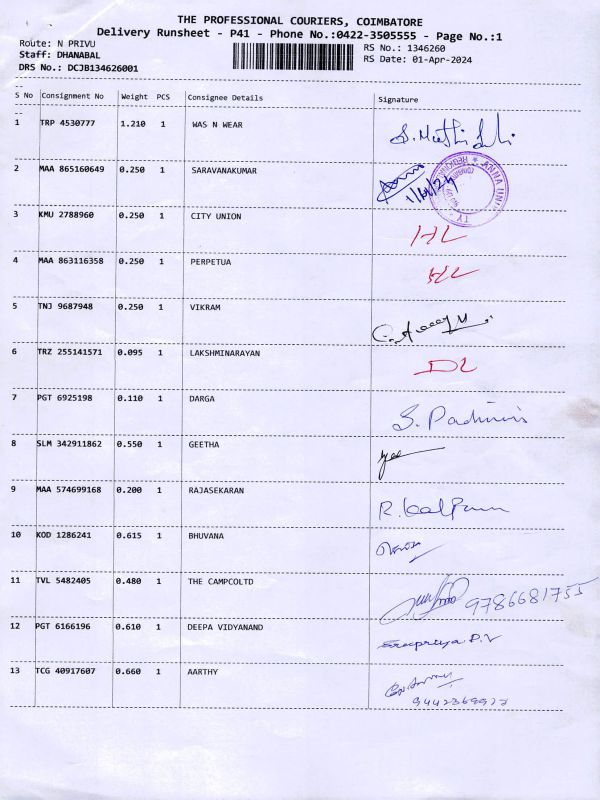 THE PROFESSIONAL COURIERS, COIMBATORE
Delivery Runsheet - P41 - Phone No.:0422-3505555 - Page No.:1
Route: N PRIVU RS No.: 1346260
Staff: DHANABAL RS Date: 01-Apr-2024
DRS No.: DCJB134626001
S No Consignment No Weight PCS Consignee Details Signature
1 TRP 4530777 1.210 1 WAS N WEAR
2 MAA 865160649 0.250 1 SARAVANAKUMAR
3 KMU 2788960 0.250 1 CITY UNION
4 MAA 863116358 0.250 1 PERPETUA
5 TNJ 9687948 0.250 1 VIKRAM
6 TRZ 255141571 0.095 1 LAKSHMINARAYAN DL
7 PGT 6925198 0.110 1 DARGA
8 SLM 342911862 0.550 1 GEETHA
9 MAA 574699168 0.200 1 RAJASEKARAN
10 KOD 1286241 0.615 1 BHUVANA
11 TVL 5482405 0.480 1 THE CAMPCOLTD 9786681755
12 PGT 6166196 0.610 1 DEEPA VIDYANAND Sreepriya P.V
13 TCG 40917607 0.660 1 AARTHY